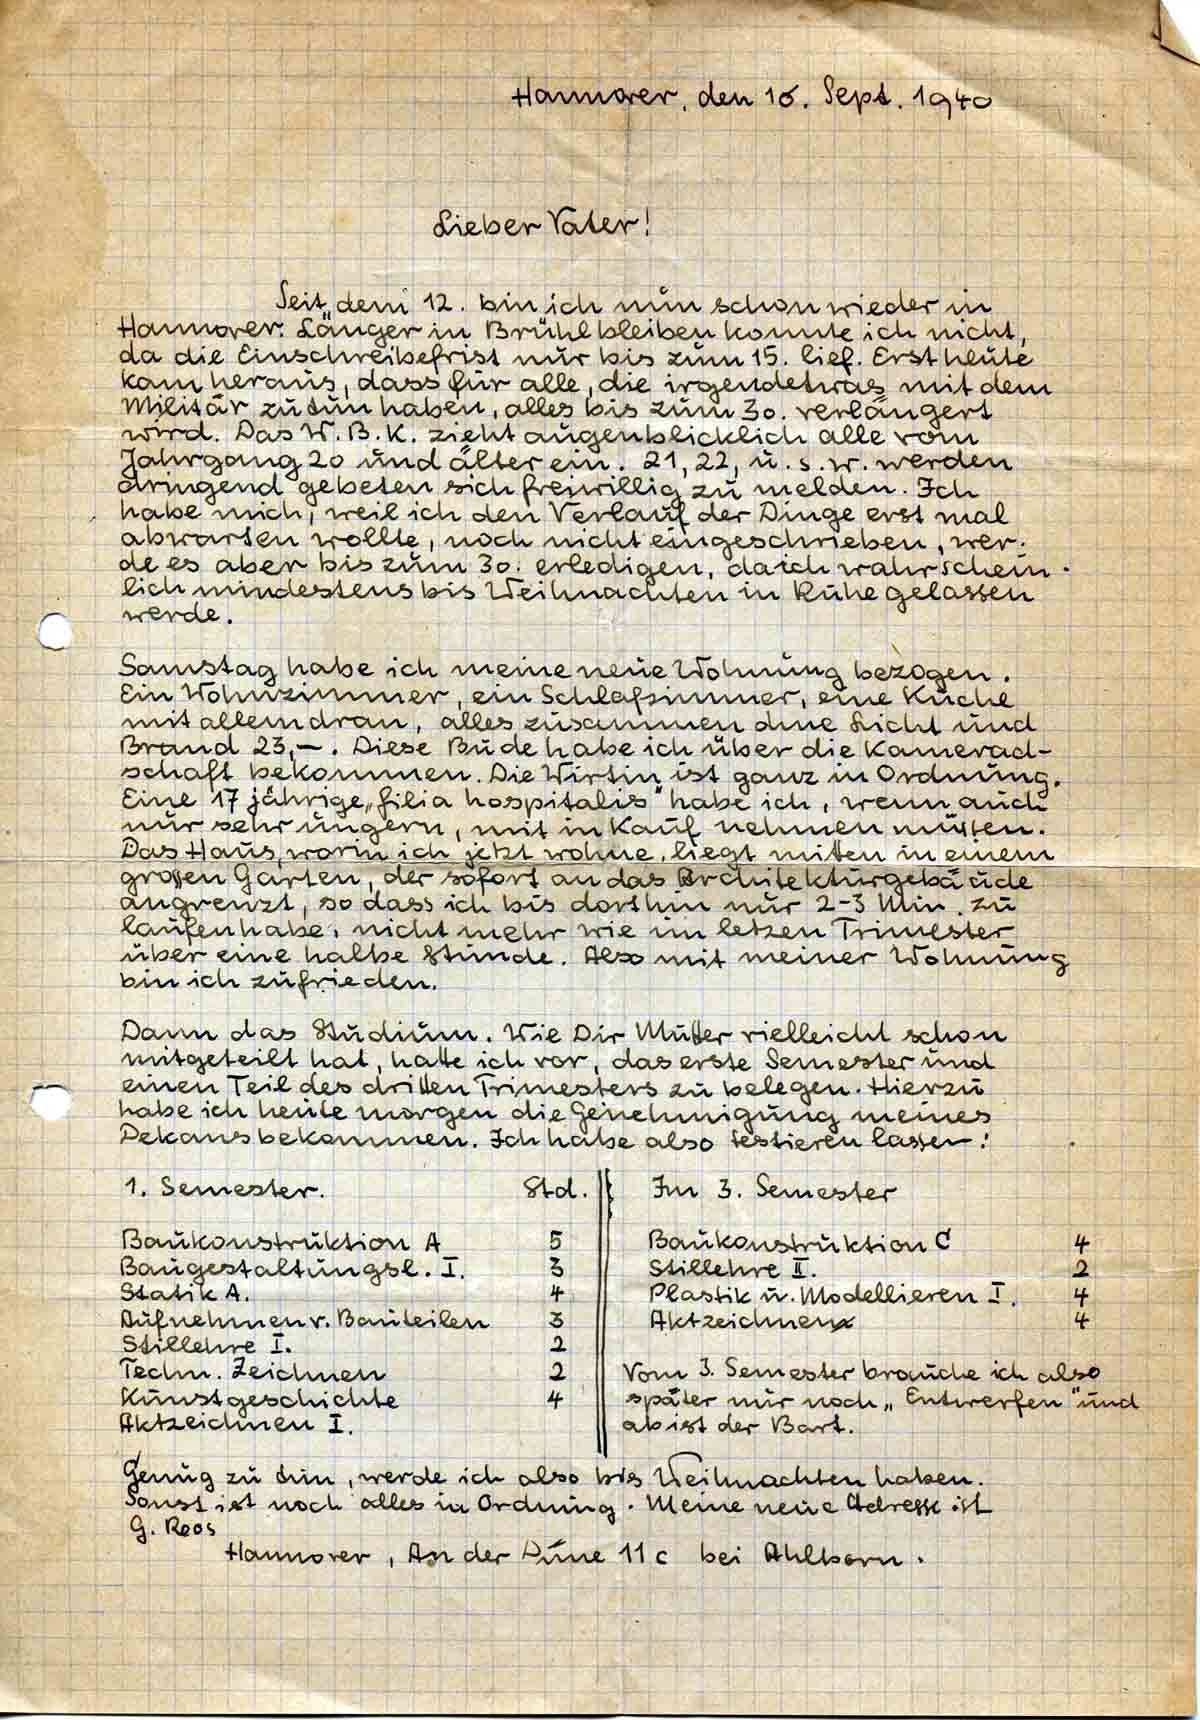 Hannover, den 16. Sept. 1940
Lieber Vater!
Seit dem 12. bin ich nun schon wieder in
Hannover. Länger in Brühl bleiben konnte ich nicht,
da die Einschreibefrist nur bis zum 15. lief. Erst heute
kam heraus, dass für alle, die irgendetwas mit dem
Militär zutun haben, alles bis zum 30. verlängert
wird. Das W.B.K. zieht augenblicklich alle vom
Jahrgang 20 und älter ein. 21, 22, u.s.w. werden
dringend gebeten sich freiwillig zu melden. Ich
habe mich, weil ich den Verlauf der Dinge erst mal
abwarten wollte, noch nicht eingeschrieben, wer-
de es aber bis zum 30. erledigen, da ich wahrschein-
lich mindestens bis Weihnachten in Ruhe gelassen
werde.
Samstag habe ich meine neue Wohnung bezogen.
Ein Wohnzimmer, ein Schlafzimmer, eine Küche
mit allem dran, alles zusammen ohne Licht und
Brand 23,-. Diese Bude habe ich über die Kamerad-
schaft bekommen. Die Wirtin ist ganz in Ordnung.
Eine 17 jährige „filia hospitalis" habe ich, wenn auch
nur sehr ungern, mit in Kauf nehmen müssen.
Das Haus, worin ich jetzt wohne, liegt mitten in einem
grossen Garten, der sofort an das Architekturgebäude
angrenzt, so dass ich bis dorthin nur 2-3 Min. zu
laufen habe, nicht mehr wie im letzen Trimester
über eine halbe Stunde. Also mit meiner Wohnung
bin ich zufrieden.
Dann das Studium. Wie Dir Mutter vielleicht schon
mitgeteilt hat, hatte ich vor, das erste Semester und
einen Teil des dritten Trimesters zu belegen. Hierzu
habe ich heute morgen die Genehmigung meines
Dekans bekommen. Ich habe also testieren lassen:
1. Semester. Std.
Baukonstruktion A 5
Baugestaltungsl. I. 3
Statik A. 4
Aufnehmen v. Bauteilen 3
Stillehre I. 2
Techn. Zeichnen 2
Kunstgeschichte 4
Aktzeichnen I.
Im 3. Semester
Baukonstruktion C 4
Stillehre II. 2
Plastik u. Modellieren I. 4
Aktzeichnen 4
Vom 3. Semester brauche ich also
später nur noch „Entwerfen" und
ab ist der Bart.
Genug zu tun, werde ich also bis Weihnachten haben.
Sonst ist noch alles in Ordnung. Meine neue Adresse ist
G. Roos
Hannover, An der Düne 11 c bei Ahlborn.